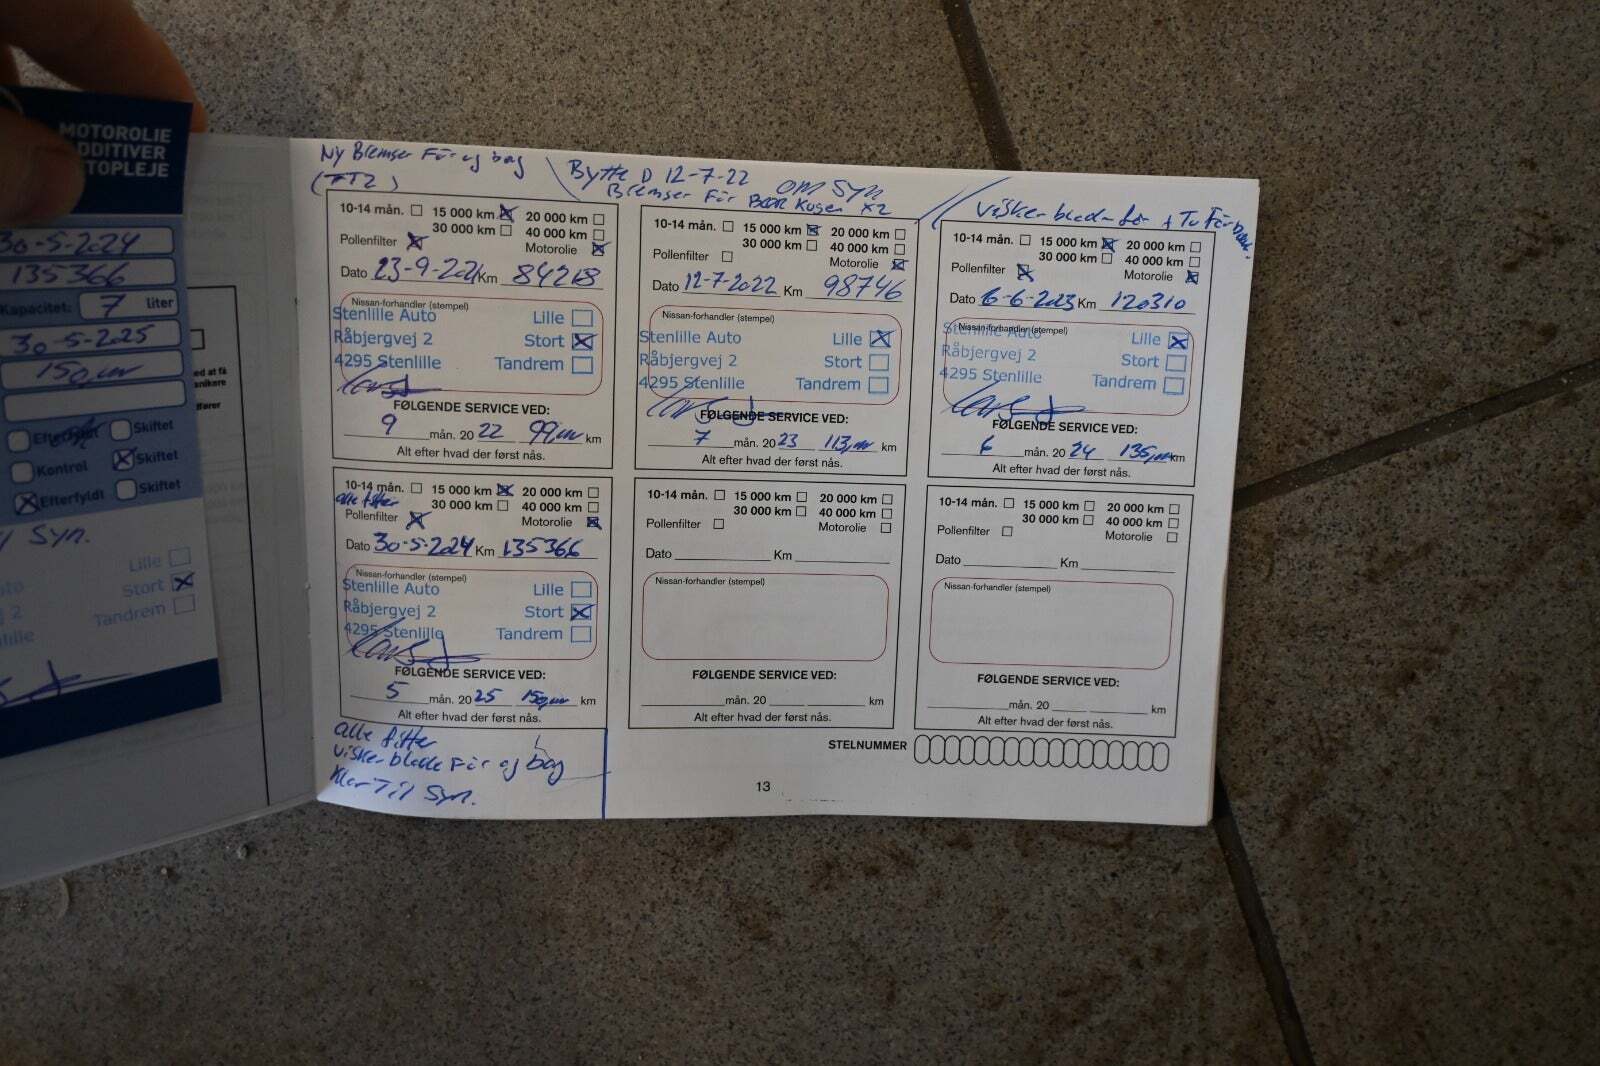 MOTOROLIE
ADDITIVER
30-5-2024
135366
Kapacitet: 7 liter
30-5-2025
150,000
Skiftet
Kontrol Skiftet
Efterfyldt Skiftet
Syn.
Lille
Stort
Tandrem
Ny Bremser För og bag
(TT2)
10-14 mån. 15 000 km 20 000 km
30 000 km 40 000 km
Pollenfilter Motorolie
Dato 23-9-2021 Km 84218
Nissan-forhandler (stempel)
Stenlille Auto Lille
Råbjergvej 2 Stort
4295 Stenlille Tandrem
FØLGENDE SERVICE VED:
9 mån. 2022 99,000 km
Alt efter hvad der først nås.
Bytte D 12-7-22 om Syn
Bremser För x2
10-14 mån. 15 000 km 20 000 km
30 000 km 40 000 km
Pollenfilter Motorolie
Dato 12-7-2022 Km 98746
Nissan-forhandler (stempel)
Stenlille Auto Lille
Råbjergvej 2 Stort
4295 Stenlille Tandrem
FØLGENDE SERVICE VED:
7 mån. 2023 113,000 km
Alt efter hvad der først nås.
Visker
10-14 mån. 15 000 km 20 000 km
30 000 km 40 000 km
Pollenfilter Motorolie
Dato 6-6-2023 Km 120310
Nissan-forhandler (stempel)
Stenlille Auto Lille
Råbjergvej 2 Stort
4295 Stenlille Tandrem
FØLGENDE SERVICE VED:
6 mån. 2024 135,000 km
Alt efter hvad der først nås.
10-14 mån. 15 000 km 20 000 km
alle filter 30 000 km 40 000 km
Pollenfilter Motorolie
Dato 30-5-2024 Km 135366
Nissan-forhandler (stempel)
Stenlille Auto Lille
Råbjergvej 2 Stort
4295 Stenlille Tandrem
FØLGENDE SERVICE VED:
5 mån. 2025 150,000 km
Alt efter hvad der først nås.
alle filter
viskerblade För og bag
klar Til Syn.
10-14 mån. 15 000 km 20 000 km
30 000 km 40 000 km
Pollenfilter Motorolie
Dato Km
Nissan-forhandler (stempel)
FØLGENDE SERVICE VED:
mån. 20 km
Alt efter hvad der først nås.
10-14 mån. 15 000 km 20 000 km
30 000 km 40 000 km
Pollenfilter Motorolie
Dato Km
Nissan-forhandler (stempel)
FØLGENDE SERVICE VED:
mån. 20 km
Alt efter hvad der først nås.
STELNUMMER
13